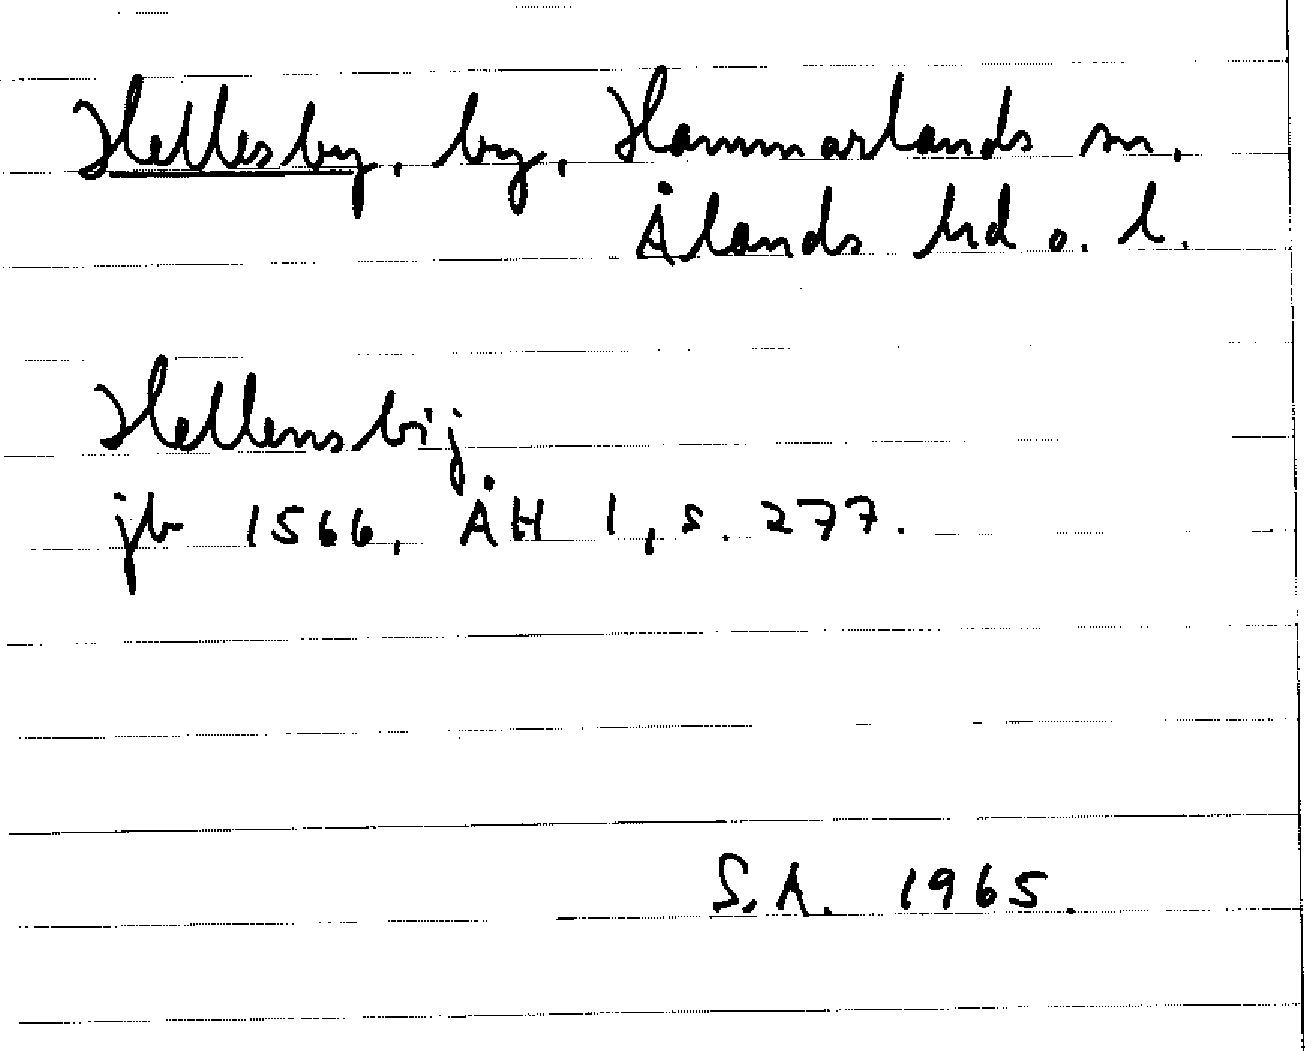 Hellesby, by, Hammarlands sn.
Ålands hrd o. l.
Hellensbij
jb 1566, ÅH 1, s. 277.
S.A. 1965.